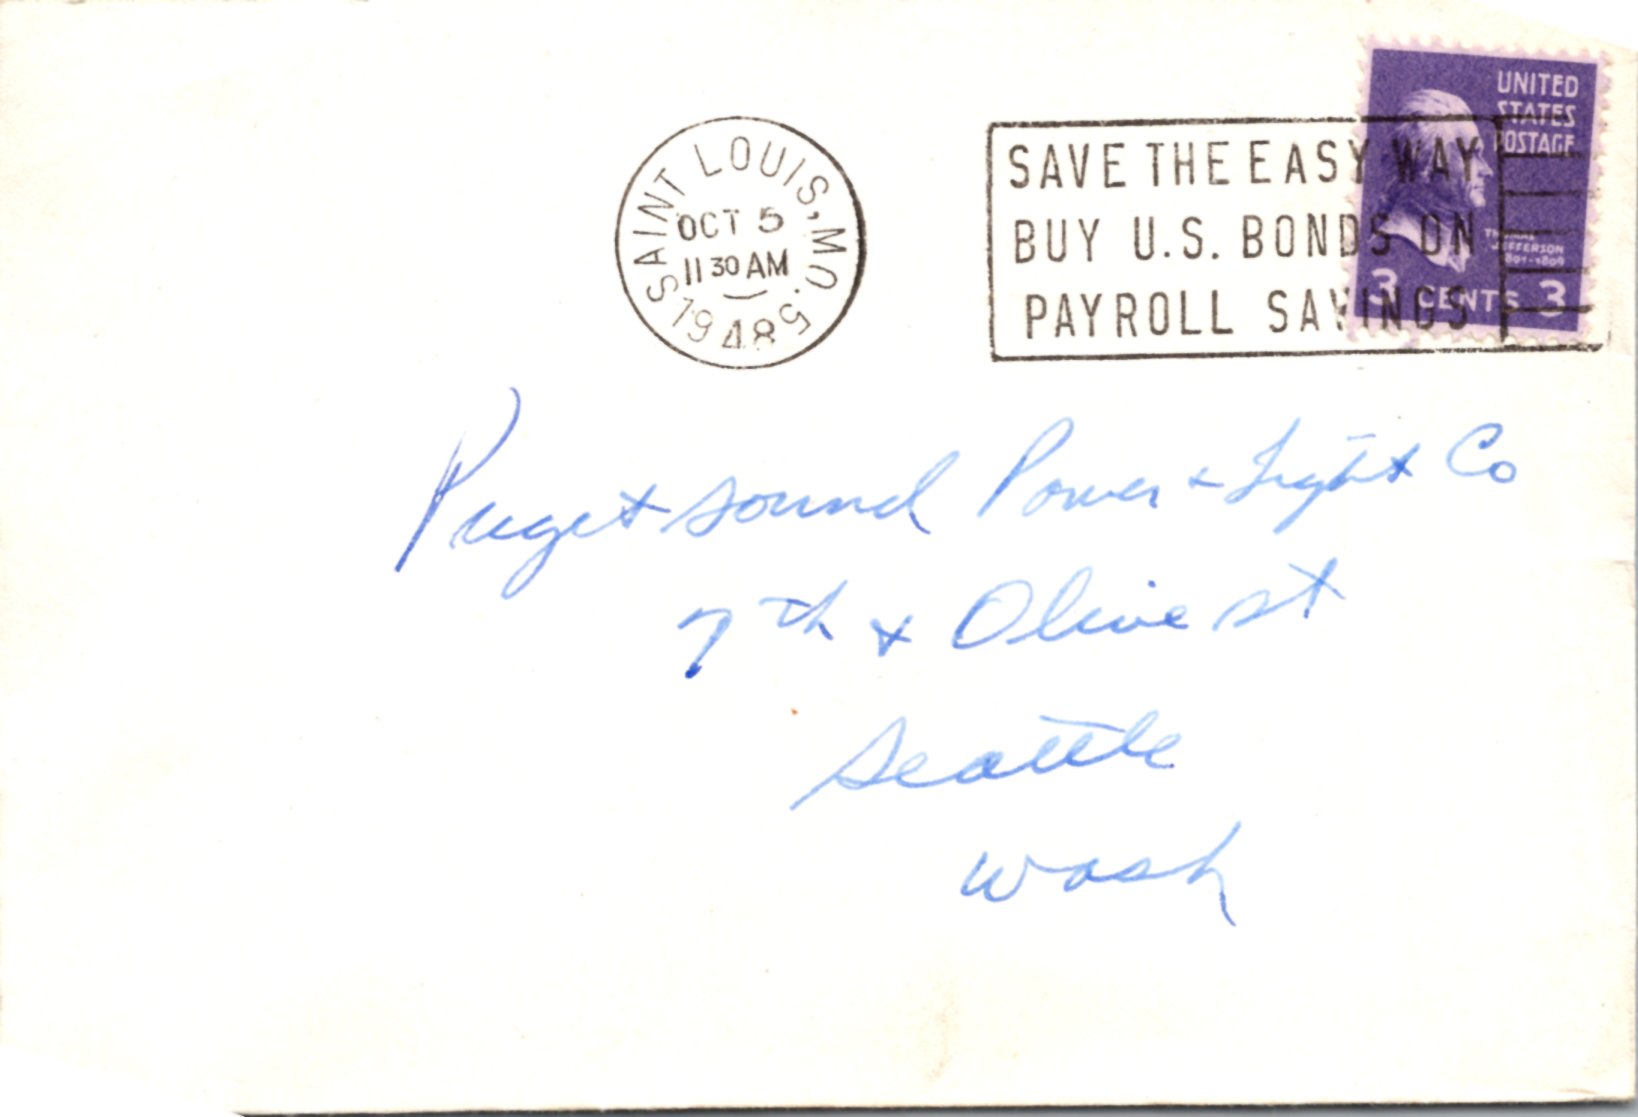 SAINT LOUIS, MO. 5
OCT 5
11 30 AM
1948
SAVE THE EASY WAY
BUY U.S. BONDS ON
PAYROLL SAVINGS
UNITED
STATES
POSTAGE
THOMAS
JEFFERSON
1801-1809
3 CENTS 3
Puget sound Power + Light Co
7th + Olive st
Seattle
Wash